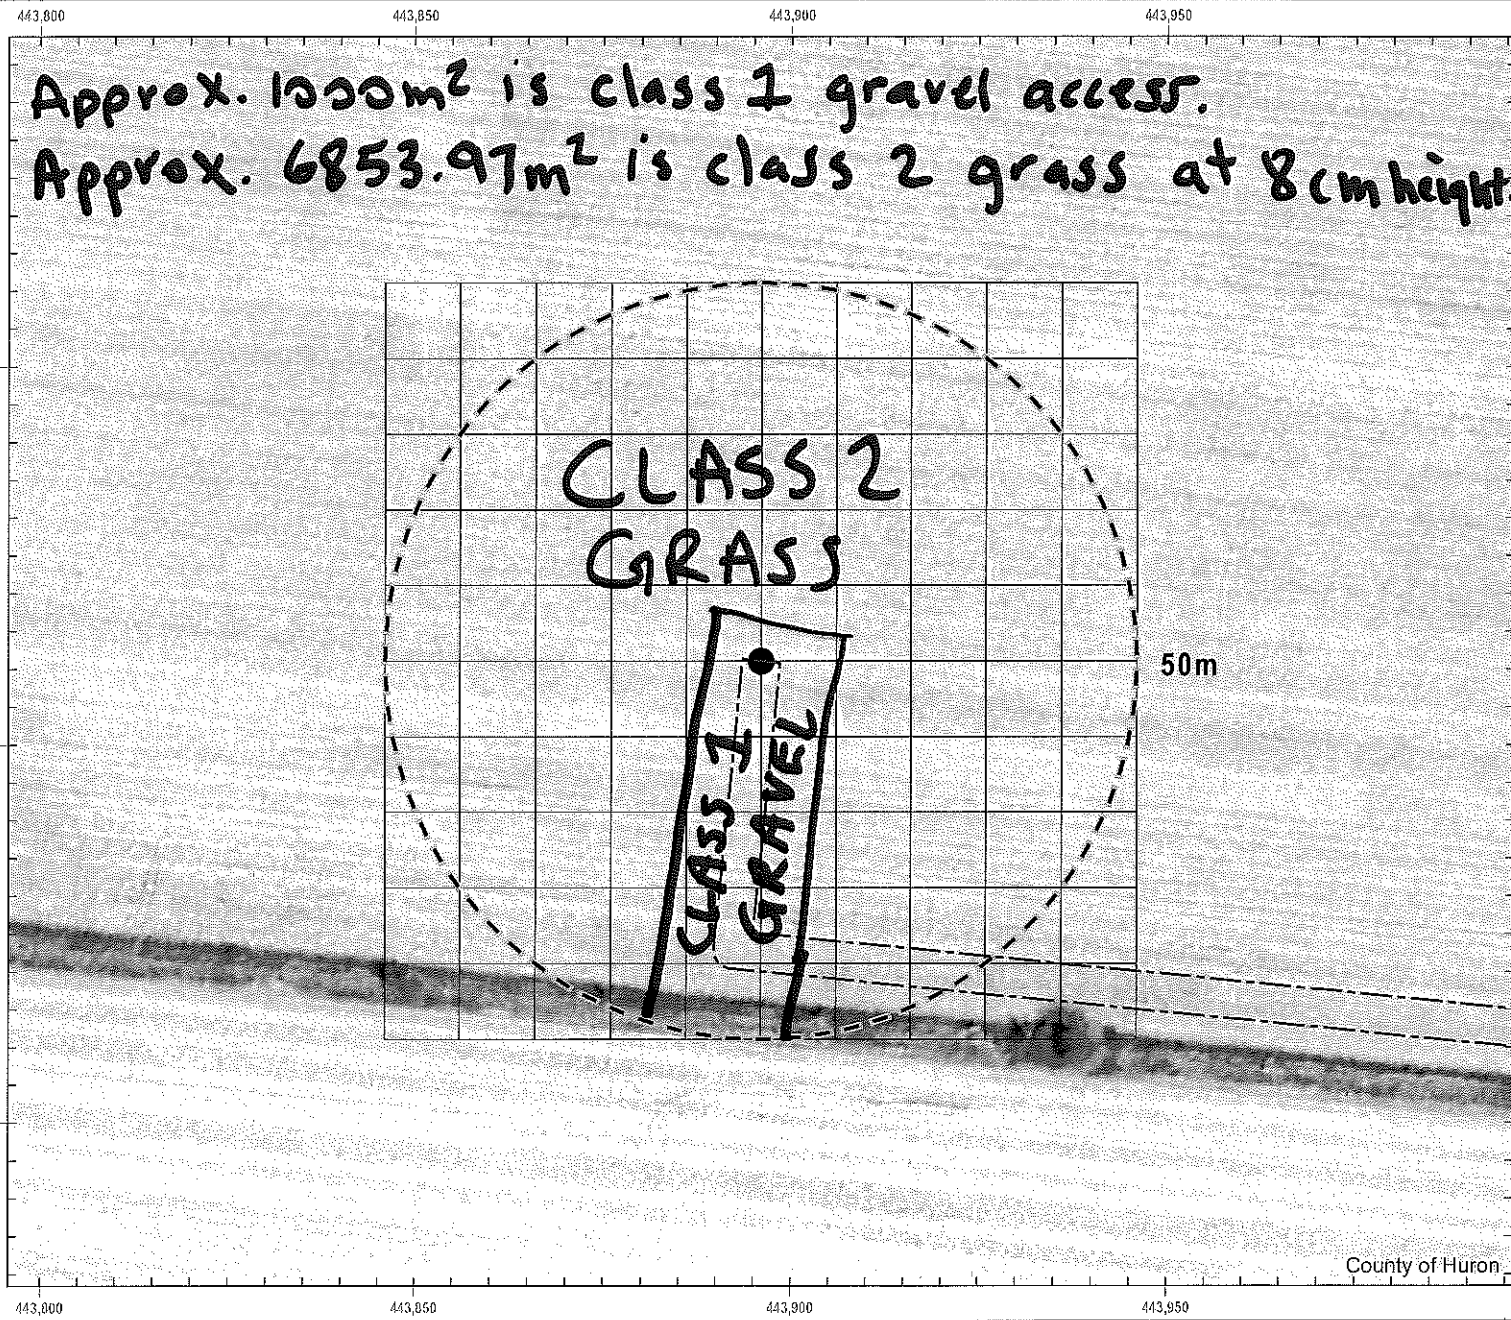 443,800 443,850 443,900 443,950
Approx. 1000m² is class 1 gravel access.
Approx. 6853.97m² is class 2 grass at 8cm height.
CLASS 2
GRASS
50m
CLASS 1
GRAVEL
County of Huron
443,800 443,850 443,900 443,950